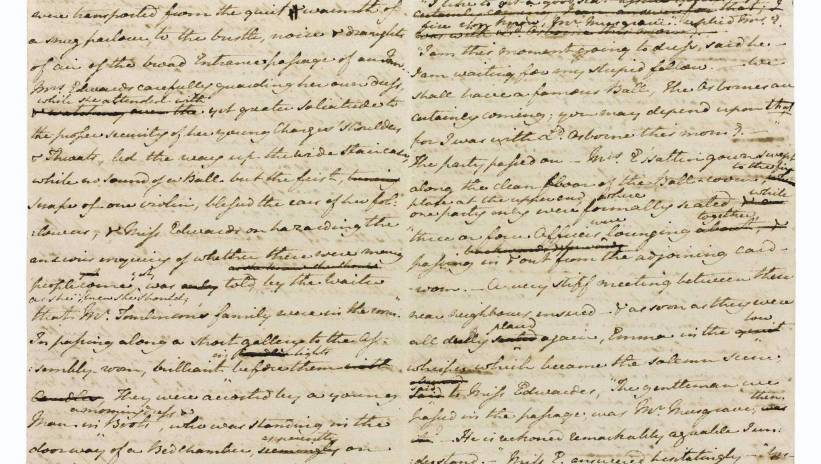 were transported from the quiet & warmth of
a snug parlour, to the bustle, noise & draughts
of air of the broad Entrance-passage of an Inn.
Mrs. Edwards carefully guarding her own dress,
while she attended with
yet greater Solicitude to
the proper security of her young Charges' Shoulders
& Throats, led the way up the wide staircase,
while no sound of a Ball but the first,
Scrape of one violin, blessed the ears of her fol-
-lowers, & Miss Edwards on hazarding the
anxious enquiry of whether there were many
people come yet was told by the Waiter
as she knew she should,
that Mr. Tomlinson's family were in the room."
In passing along a short gallery to the As-
in lights
sembly-room, brilliant before them
They were accosted by a young
a morning dress &
Man in Boots, who was standing in the
doorway of a Bedchamber, apparently on
nice thing, Mr. Musgrave," replied Mrs. E.
was with Ld. Osborne this morng.
"I am this moment going to dress, said he—
I am waiting for my stupid fellow.— We
shall have a famous Ball, The Osbornes are
certainly coming; you may depend upon that
for I was with Ld. Osborne this morng.—"
The party passed on— Mrs. E's sattin gown swept
along the clean floor of the Ball-room, to the fire
place at the upper end, where
one party only were formally seated, while
three or four Officers were lounging together,
passing in & out from the adjoining card-
room.— A very stiff meeting between these
near neighbours ensued— & as soon as they were
all duely placed again, Emma in the low
whisper which became the solemn scene
said to Miss Edwardes, "The gentleman we
passed in the passage, was Mr. Musgrave, then
He is reckoned remarkably agreable I un-
-derstand.—" Miss E. answered hesitatingly—